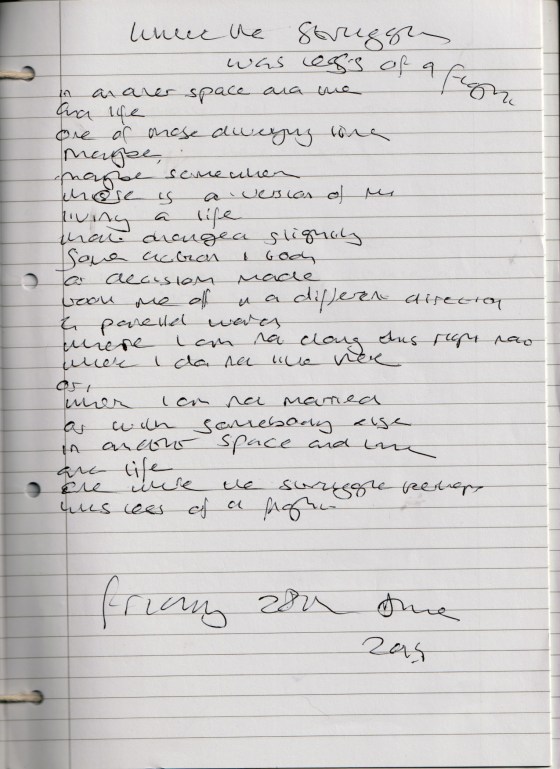 where the struggle
was less of a fight
in another space and time
and life
one of those diverging
maybe,
maybe somewhere
there is a version of me
living a life
that changed slightly
some action I took
a decision made
took me off in a different direction
a parallel world
where I am not doing this right now
where I do not live here
or,
where I am not married
or with somebody else
in another space and time
and life
one where the struggle perhaps
was less of a fight
Friday 28th June